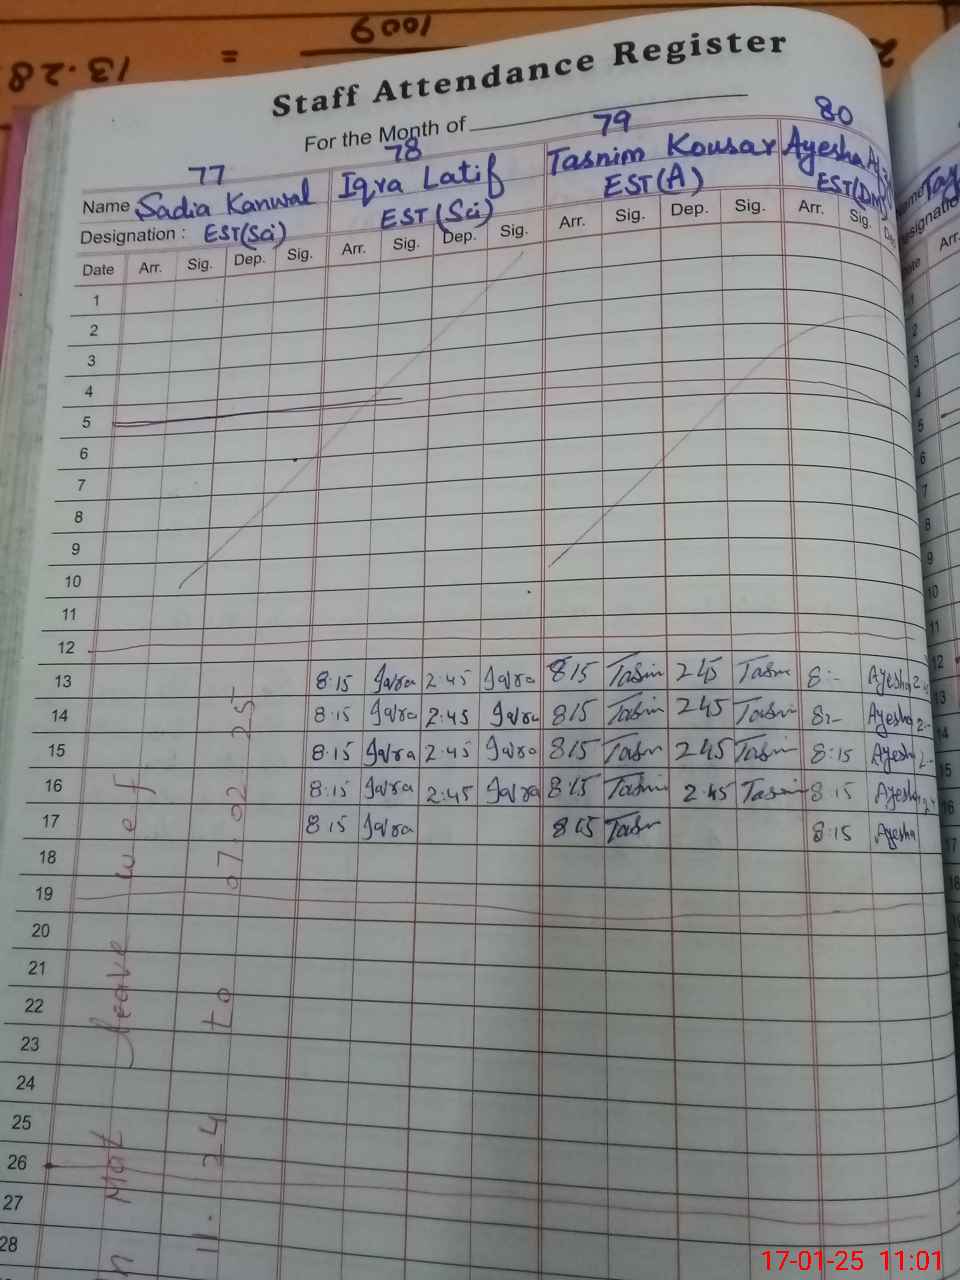 1009
13.28 =
Staff Attendance Register
For the Month of
77 78 79 80
Name Sadia Kanwal Iqra Latif Tasnim Kousar Ayesha
Designation : EST(Sci) EST (Sci) EST(A) EST(DM)
Date Arr. Sig. Dep. Sig. Arr. Sig. Dep. Sig. Arr. Sig. Dep. Sig. Arr. Sig.
1
2
3
4
5
6
7
8
9
10
11
12
13 8:15 Iqra 2:45 Iqra 815 Tasnim 245 Tasnim 8:- Ayesha
14 8:15 Iqra 2:45 Iqra 815 Tasnim 245 Tasnim 8:- Ayesha
15 8:15 Iqra 2:45 Iqra 815 Tasnim 245 Tasnim 8:15 Ayesha
16 8:15 Iqra 2:45 Iqra 8:15 Tasnim 2:45 Tasnim 8:15 Ayesha
17 8:15 Iqra 815 Tasnim 8:15 Ayesha
18
19
20
21
22
23
24
25
26
27
28
Mat leave w e f
11. 24 to 07.02.25
17-01-25 11:01